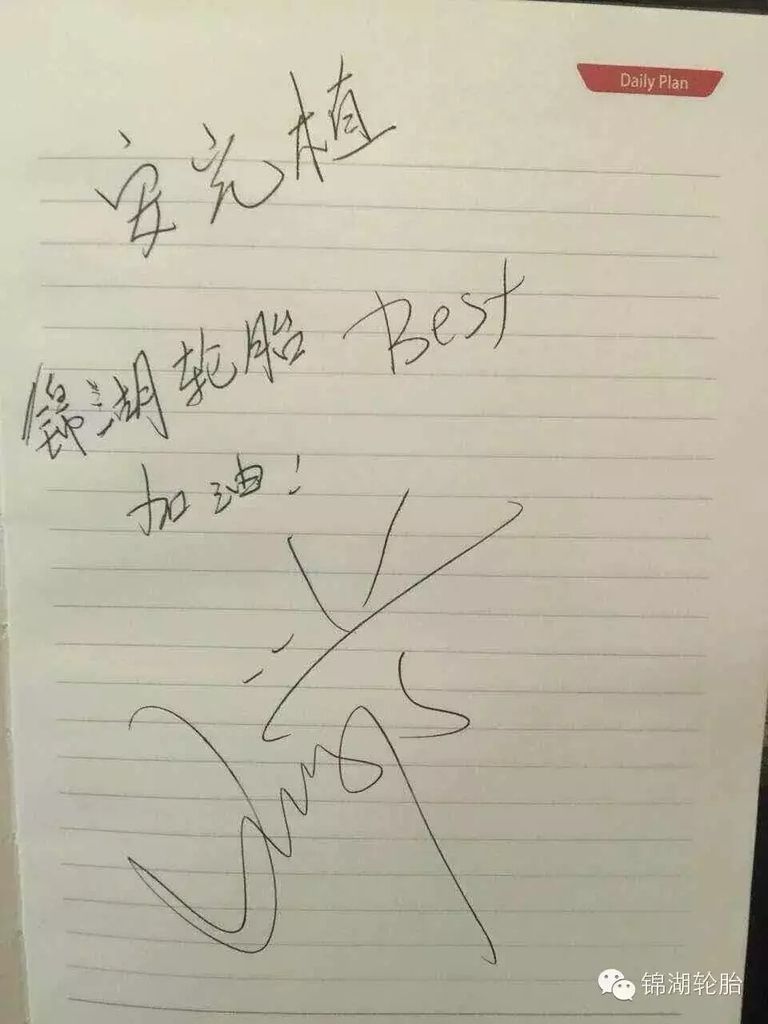 Daily Plan
安充植
锦湖轮胎 Best
加油！
锦湖轮胎